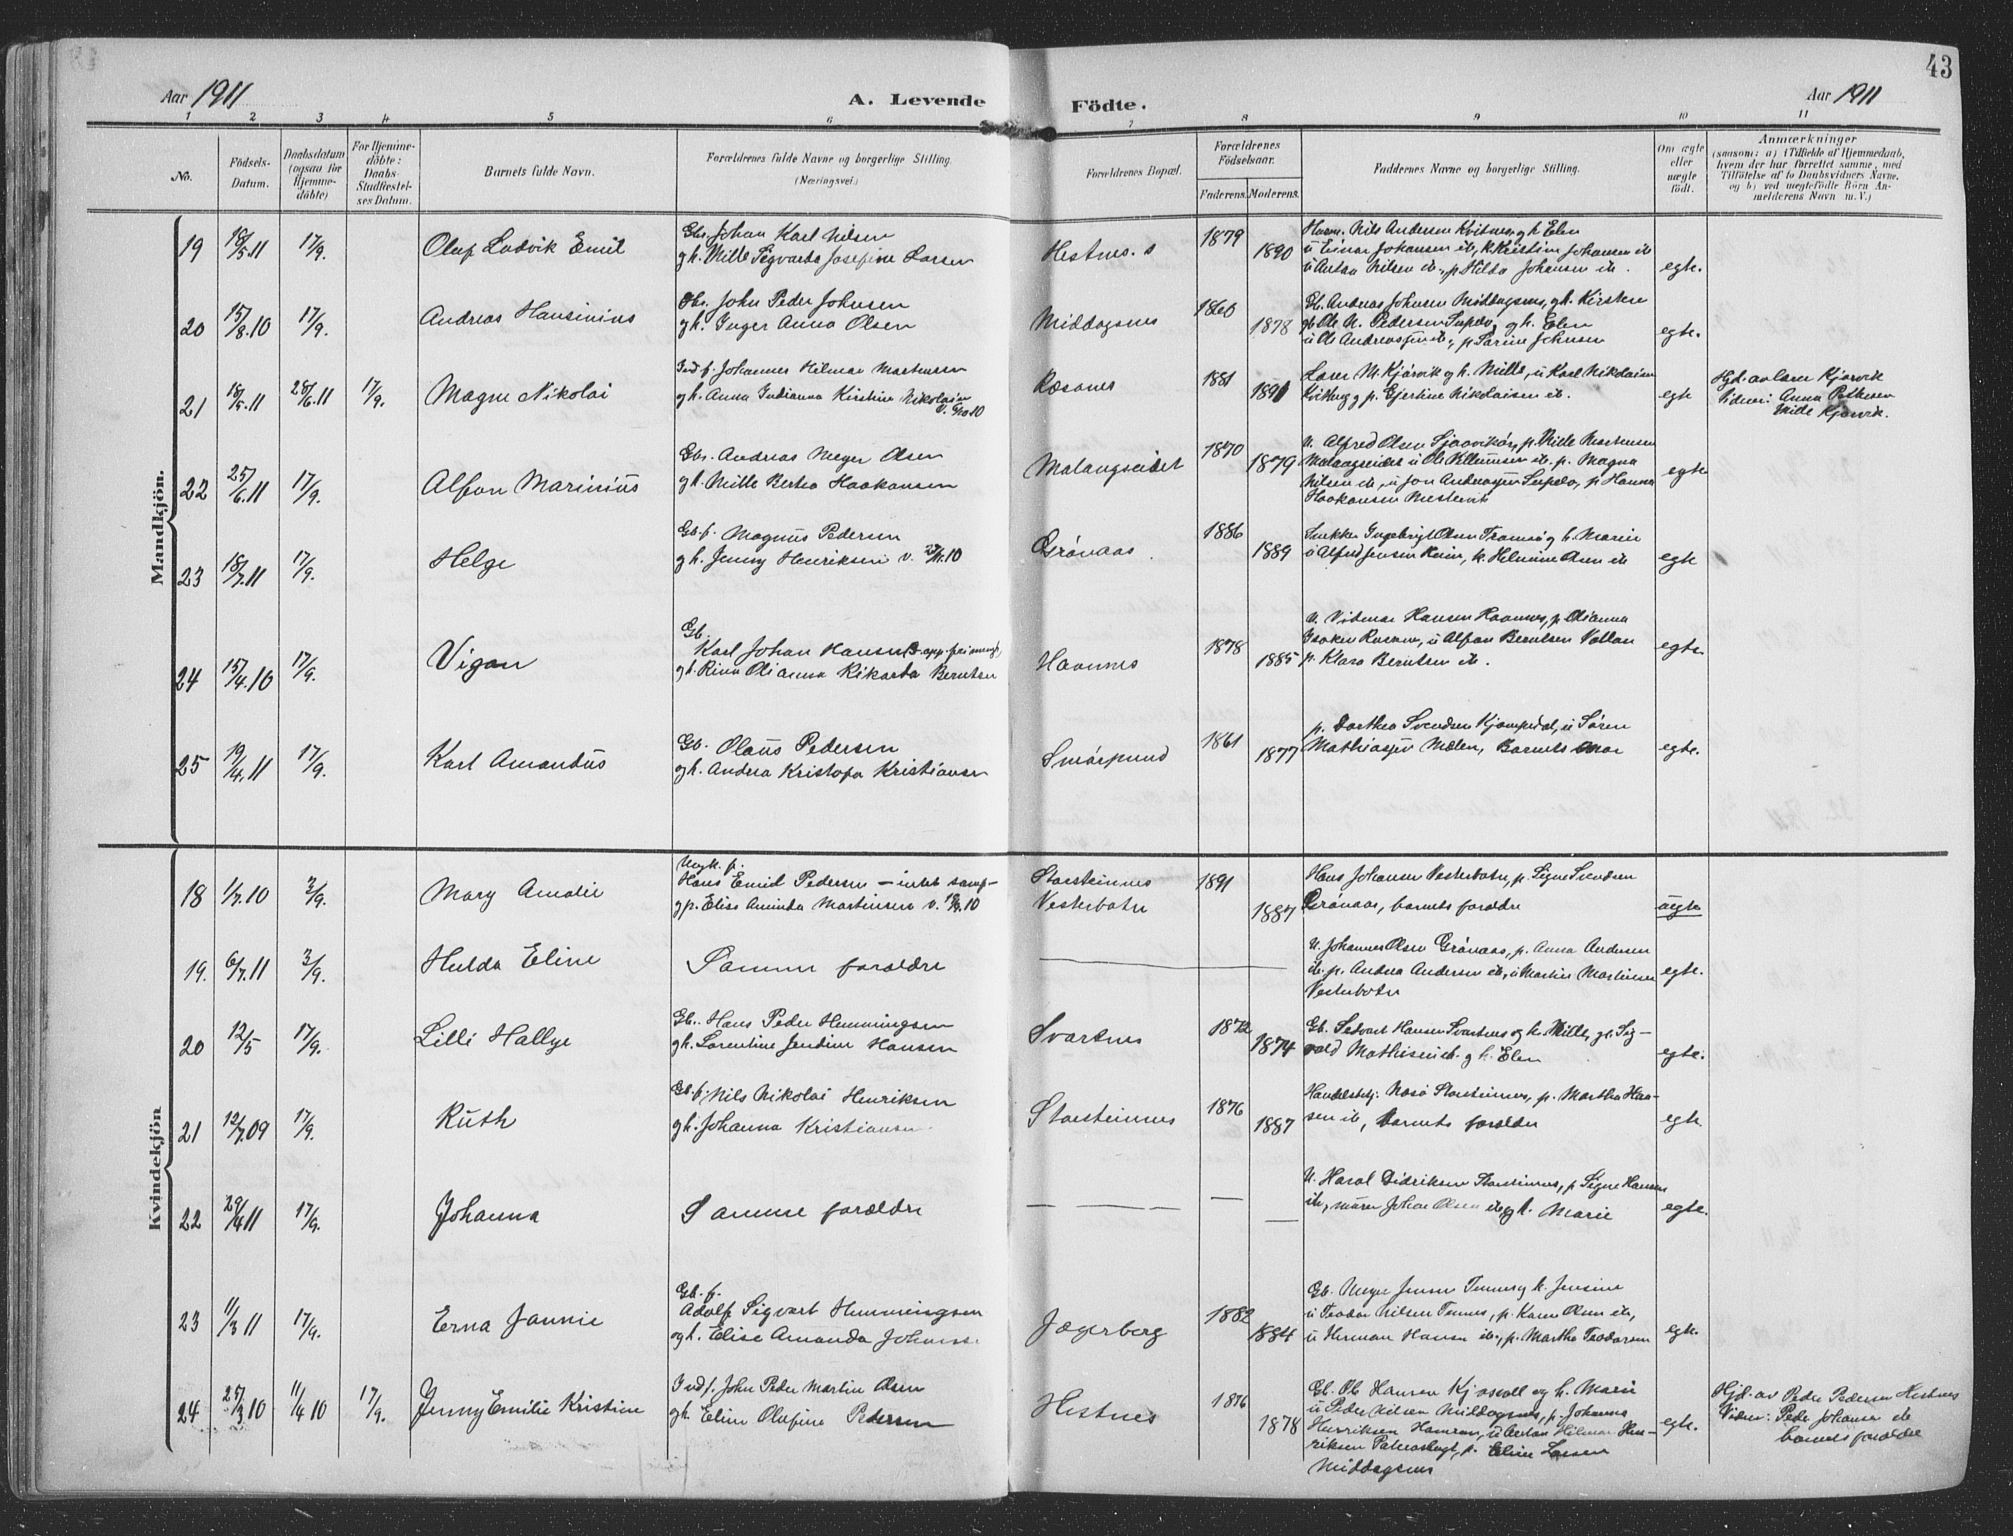 43
Aar 1911
A. Levende Födte.
Aar 1911
1 2 3 4 5 6 7 8 9 10 11
No.
Födsels-
Datum.
Daabsdatum
(ogsaa for
Hjemme-
döbte)
For Hjemme-
döbte:
Daabs-
Stadfæstel-
ses Datum.
Barnets fulde Navn.
Forældrenes fulde Navne og borgerlige Stilling.
(Næringsvei.)
Forældrenes Bopæl.
Forældrenes
Födselsaar.
Faderens. Moderens.
Faddernes Navne og borgerlige Stilling.
Om ægte
eller
uægte
födt.
Anmærkninger
(saasom: a) i Tilfælde af Hjemmedaab,
hvem der har forrettet samme, med
Tilföielse af to Daabsvidners Navne,
og b) ved uægtefödte Börn An-
melderens Navn m. V.)
Mandkjön.
19 18/5.11 17/9. Oluf Ludvik Emil
Gbr. Johan Karl Nilsen
gh. Mille Sigvarda Josefine Larsen
Hestnes. 1879 1890
Nils Andersen Kvitnes, gh Elen
u Einar Johansen ib, p. Kristine Johansen ib
u Anton Nilsen ib., p Hilda Johansen ib.
egte.
20 15/8.10 17/9. Andreas Hansinius
Gbr. John Peder Johnsen
gh. Inger Anna Olsen
Middagsnes 1860 1878
Gb. Andreas Johnsen Middagsnes, gh. Kirsten
gb Ole N. Pedersen gh. Elen
u Ole Andreassen ib., p Sarine Johnsen
egte.
21 18/5.11 28/6.11 17/9. Magne Nikolai
Ind f. Johannes Hilmar Martinsen
gh. Anna Indianna Kirstine Nikolaisen
Ræsanes 1881 1891
Lærer M. Kjærvik gh. Mille, u Karl Nikolaisen
Kvitberg p Ejertine Nikolaisen ib.
egte
Hjd. av lærer Kjærvik
Vidner: Anna Pettersen
Mille Kjærvik.
22 25/6.11 17/9. Alfon Marinius
Gbr. Andreas Meyer Olsen
gh. Mille Berta Haakonsen
Malangseidet 1870 1879
U. Alfred Olsen p. Mille Martinsen
Malangseidet u Ole ib. p. Magna
Nilsen ib., u Jon Andreassen p Hanna
Haakonsen
egte
23 18/7.11 17/9. Helge
Gb.f. Magnus Pedersen
gh. Jenny Henriksen v.
Grönaas. 1886 1889
Snekker Ingebrigt Olsen Tromsö gh. Marie
u Alfred Jensen p. Helmine Olsen ib
egte
24 15/4.10 17/9. Vigan
Gb.
Karl Johan Hansen
gh. Rina Olianna Rikarda Berntsen
Havnnes 1878 1885
U. Vidmar Hansen Havnnes, p Olianna
Isaksen u Alfon Berntsen Vollan
p. Klara Berntsen ib.
egte.
25 19/4.11 17/9. Karl Amandus
Gb. Olaus Pedersen
gh. Andrea Kristofa Kristiansen
Smörsund 1861 1877
p. Dorthea Svendsen u Sören
Mathiassen Mælen, Barnets mor
egte.
Kvindekjön
18 1/7.10 3/9. Mary Amalie
Ungk. f.
Hans Emil Pedersen - intet samp-
g p. Elise Aminda Martinsen v.
Storsteinnes
Vesterbotn
1891 1887
Hans Johansen Vesterbotn, p. Signe Svendsen
Grönaas, barnets forældre
uegte
19. 6/7.11 3/9. Hulda Eline
Samme forældre
U. Johannes Olsen Grönaas, p. Anna Andersen
ib. p. Andrea Andersen ib, u Martin Martinsen
Vesterbotn
egte.
20 12/5 17/9. Lilli Hallye
Gb. Hans Peder Hemmingsen
gh. Lorentine Jendine Hansen
Svartnes 1872 1874
Gb. Sedvart Hansen Svartnes og h. Mille, gb. Sig-
vald Mathisen ib. gh. Elen
egte.
21 12/7.09 17/9. Ruth
Gb.f. Nils Nikolai Henriksen
gh. Johanna Kristiansen
Storsteinnes 1876 1887
Handelsbtj. Storsteinnes, p. Martha Han-
sen ib, barnets forældre
egte.
22 29/4.11 17/9. Johanna
Samme forældre
U. Haral Didriksen Storsteinnes, p Signe Hansen
ib, murer Johan Olsen ib, gh. Marie
egte.
23 11/3 11 17/9. Erna Jannie
Gb. f.
Adolf Sigvart Hemmingsen
og h. Elise Amanda
Jægerberg 1882 1884
Gb. Meyer Jensen Tennes g h. Jensine
u Teodor Nilsen Tennes, p. Karen Olsen ib,
u Herman Hansen ib., p. Martha Teodorsen
egte.
24 25/3 10 11/4 10 17/9. Jenny Emilie Kristine
Ind f. John Peder Martin Olsen
gh. Eline Olufine Pedersen
Hestnes 1876 1878
Gb. Ole Hansen Kjosvoll og h. Marie
u Peder Nilsen Middagsnes, p. Johanna
Henriksen u Anton Hilmar Hen-
riksen p. Eline Larsen
Middagsnes
egte.
Hjd. av Peder Pedersen Hestnes
Vidner: Peder Johansen ib
barnets forældre